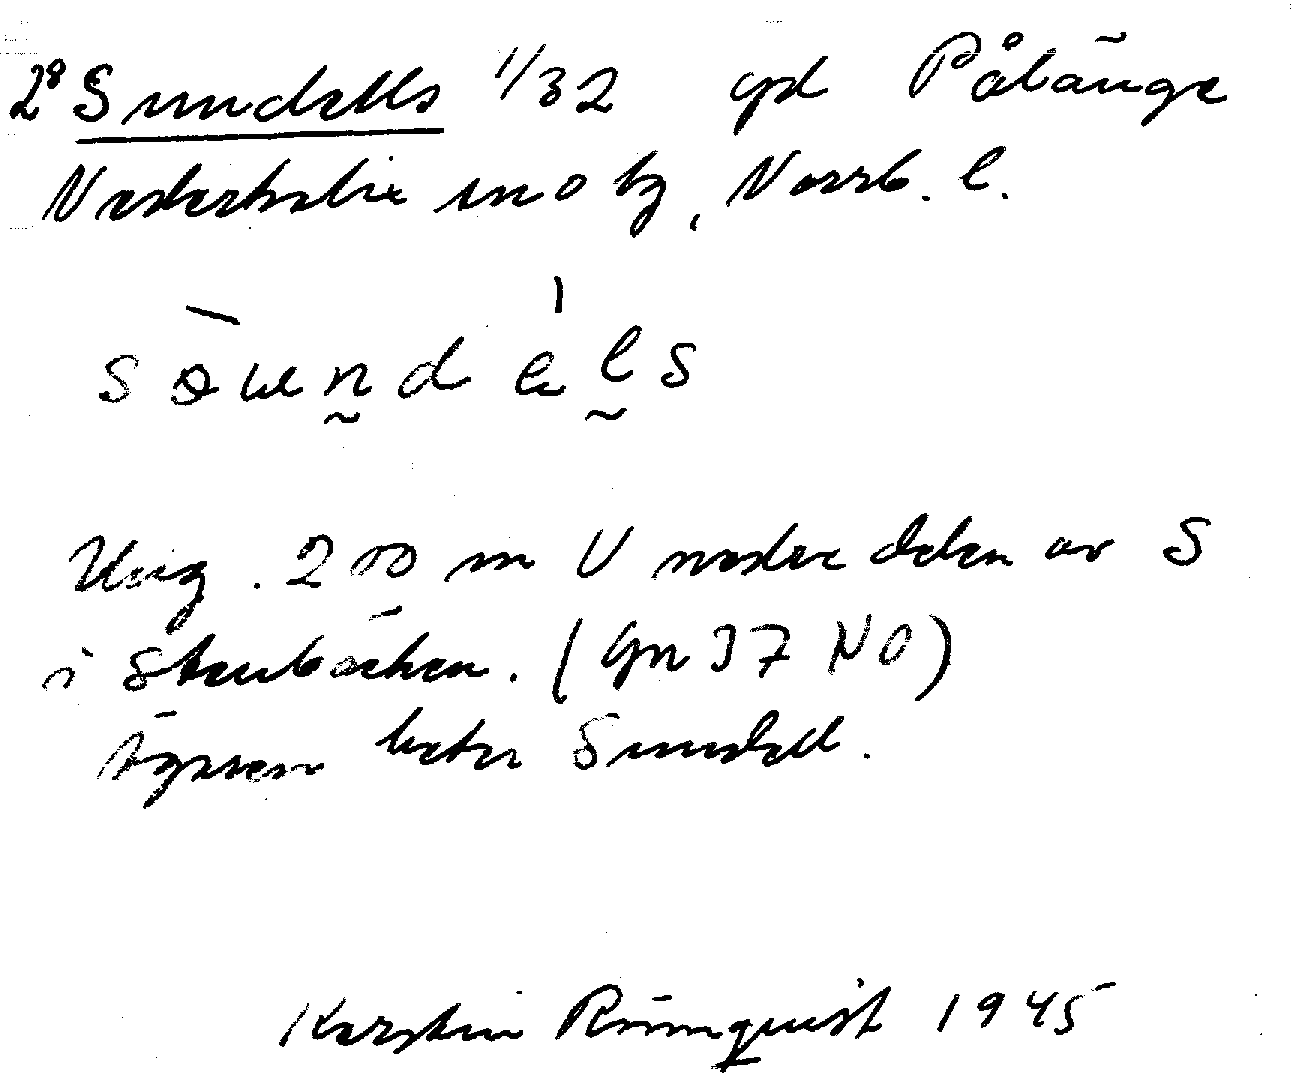 2° Sundells 1/32 gd Pålänge
Nederkalix sn o tg, Norrb. l.
səʉndals
Ung. 200 m V nedre delen av S
i Stenbäcken. (Gn 37 NO)
Ägaren heter Sundell.
Kerstin Rönnquist 1945